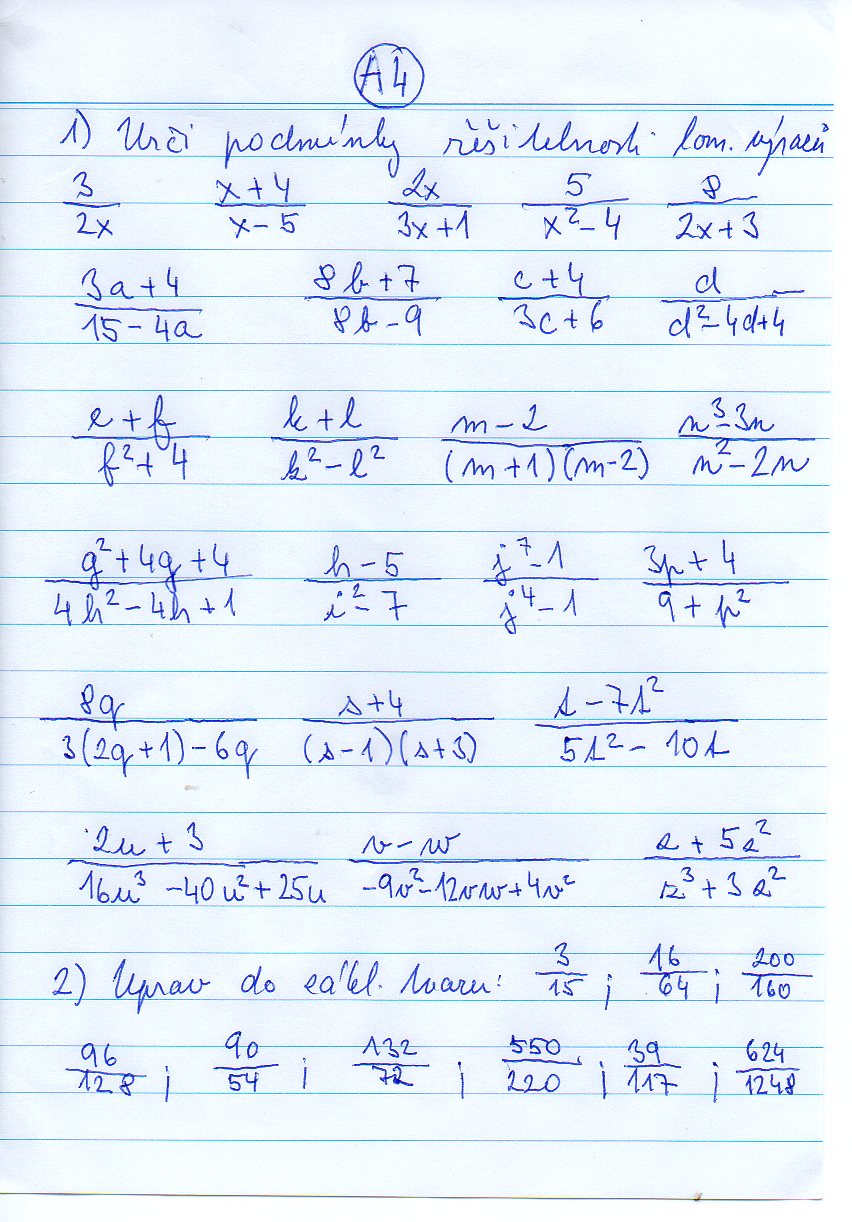 A4
1) Urči podmínky řěšitelnosti lom. výrazů
3/2x (x+4)/(x-5) 2x/(3x+1) 5/(x²-4) 8/(2x+3)
(3a+4)/(15-4a) (8b+7)/(8b-9) (c+4)/(3c+6) d/(d²-4d+4)
(e+f)/(f²+4) (k+l)/(k²-l²) (m-2)/((m+1)(m-2)) (n³-3n)/(n²-2n)
(g²+4g+4)/(4h²-4h+1) (h-5)/(i²-7) (j⁷-1)/(j⁴-1) (3p+4)/(9+p²)
8q/(3(2q+1)-6q) (s+4)/((s-1)(s+3)) (t-7t²)/(5t²-10t)
(2u+3)/(16u³-40u²+25u) (v-w)/(-9v²-12vw+4v²) (z+5z²)/(z³+3z²)
2) Uprav do zákl. tvaru: 3/15 ; 16/64 ; 200/160
96/128 ; 90/54 ; 132/72 ; 550/220 ; 39/117 ; 624/1248